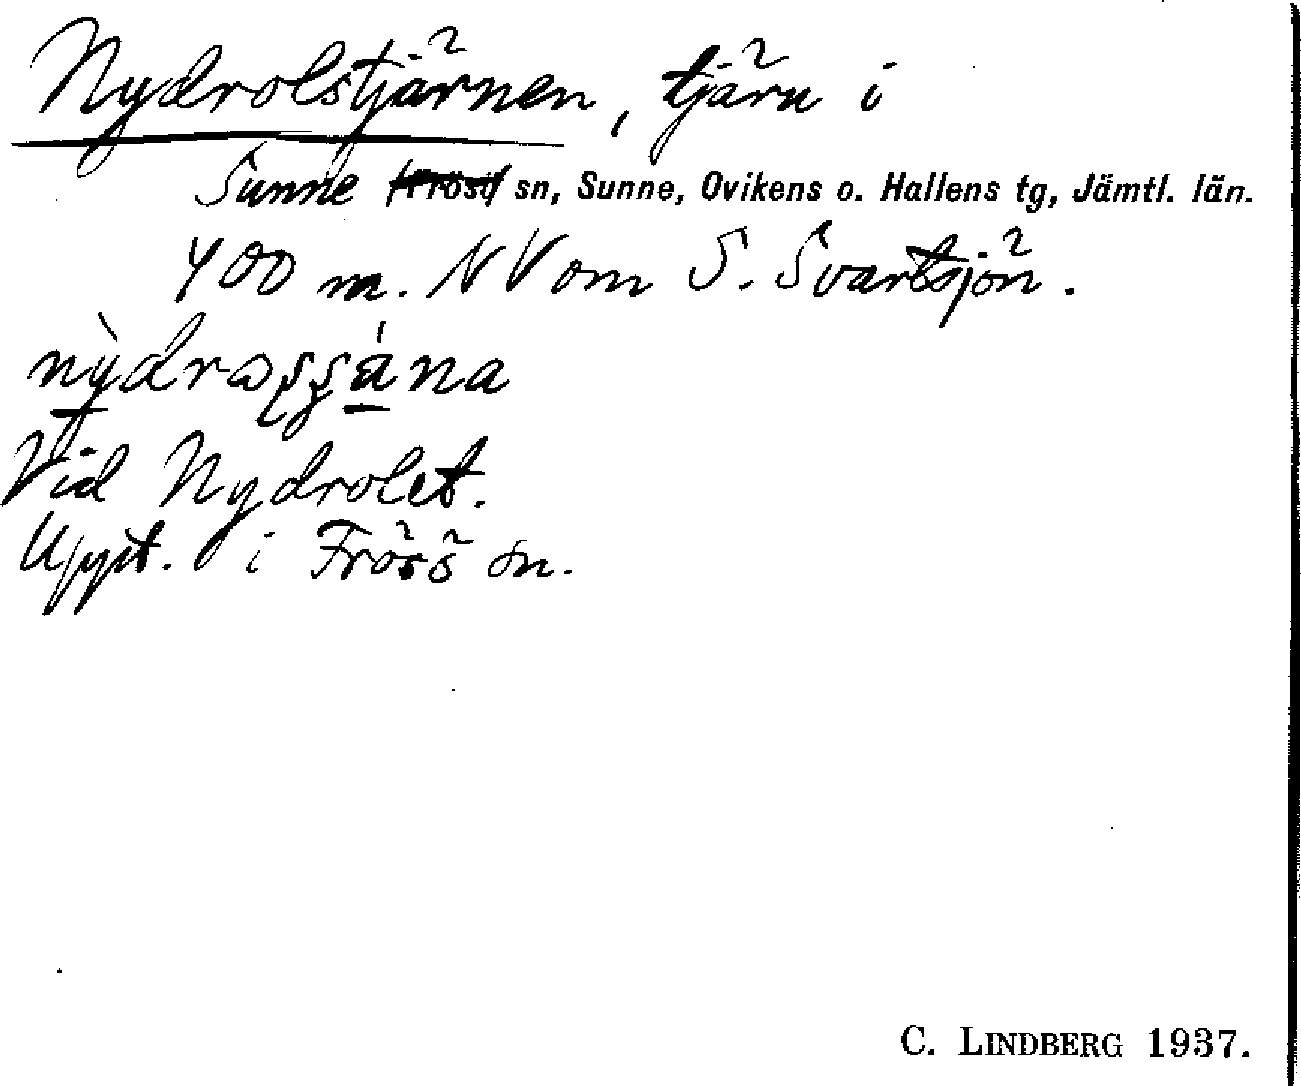 Nydrolstjärnen, tjärn i
Sunne Frösö sn, Sunne, Ovikens o. Hallens tg, Jämtl. län.
400 m. NV om S. Svartsjön.
Vid Nydrolet.
Uppt. i Frösö sn.
C. LINDBERG 1937.